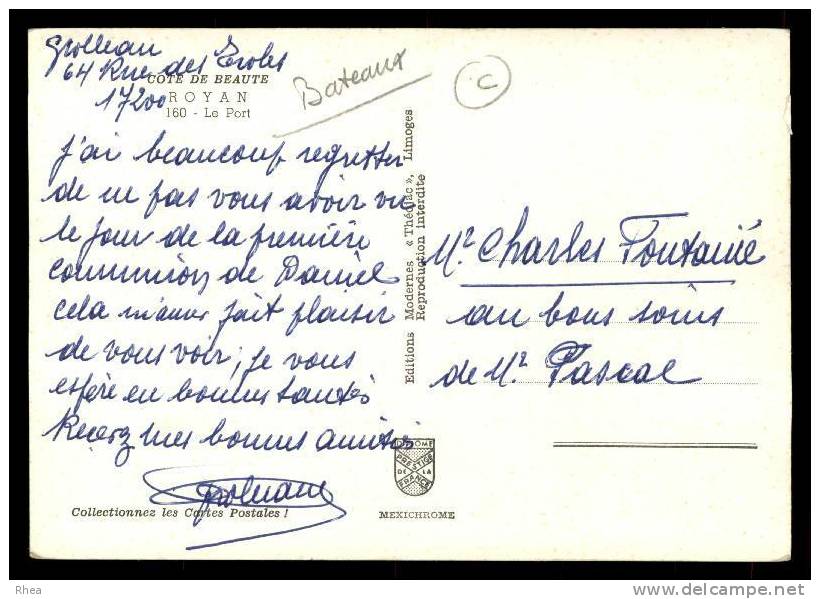 Grolleau
64 Rue des Ecoles
17200
COTE DE BEAUTE
ROYAN
160 - Le Port
Bateaux
C
J'ai beaucoup regretter
de ne pas vous avoir vu
le jour de la première
communion de Daniel
cela m'aurer fait plaisir
de vous voir, je vous
espère en bonnes santés
Recevez mes bonnes amitiés
Grolleau
Collectionnez les Cartes Postales !
Editions Modernes « Théojac », Limoges
Reproduction interdite
PRESTIGE
DE LA
FRANCE
MEXICHROME
Mr Charles Fontainé
au bons soins
de Mr Pascal
Rhea
www.delcampe.net